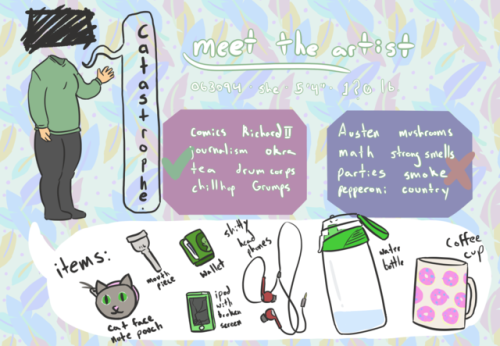 Catastrophe.
meet the artist
063094 she 5'4" 170 lb
Comics Richard II
journalism okra
tea drum corps
chillhop Grumps
Austen mushrooms
math strong smells
parties smoke
pepperoni country
items:
mouth
piece
wallet
shitty
head
phones
water
bottle
Coffee
cup
cat face
note pooch
ipod
with
broken
screen